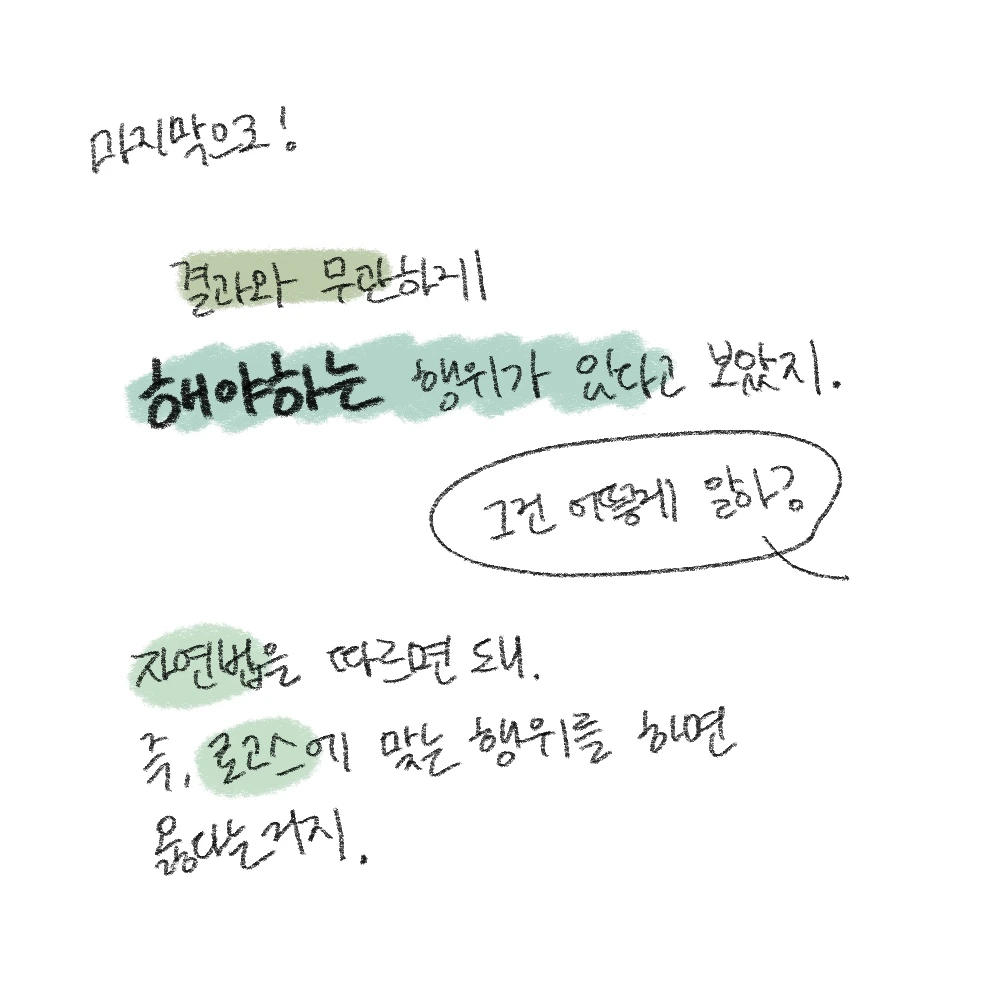 마지막으로!
결과와 무관하게
해야하는 행위가 있다고 보았지.
그건 어떻게 알아?
자연법을 따르면 돼.
즉, 로고스에 맞는 행위를 하면
옳다는거지.